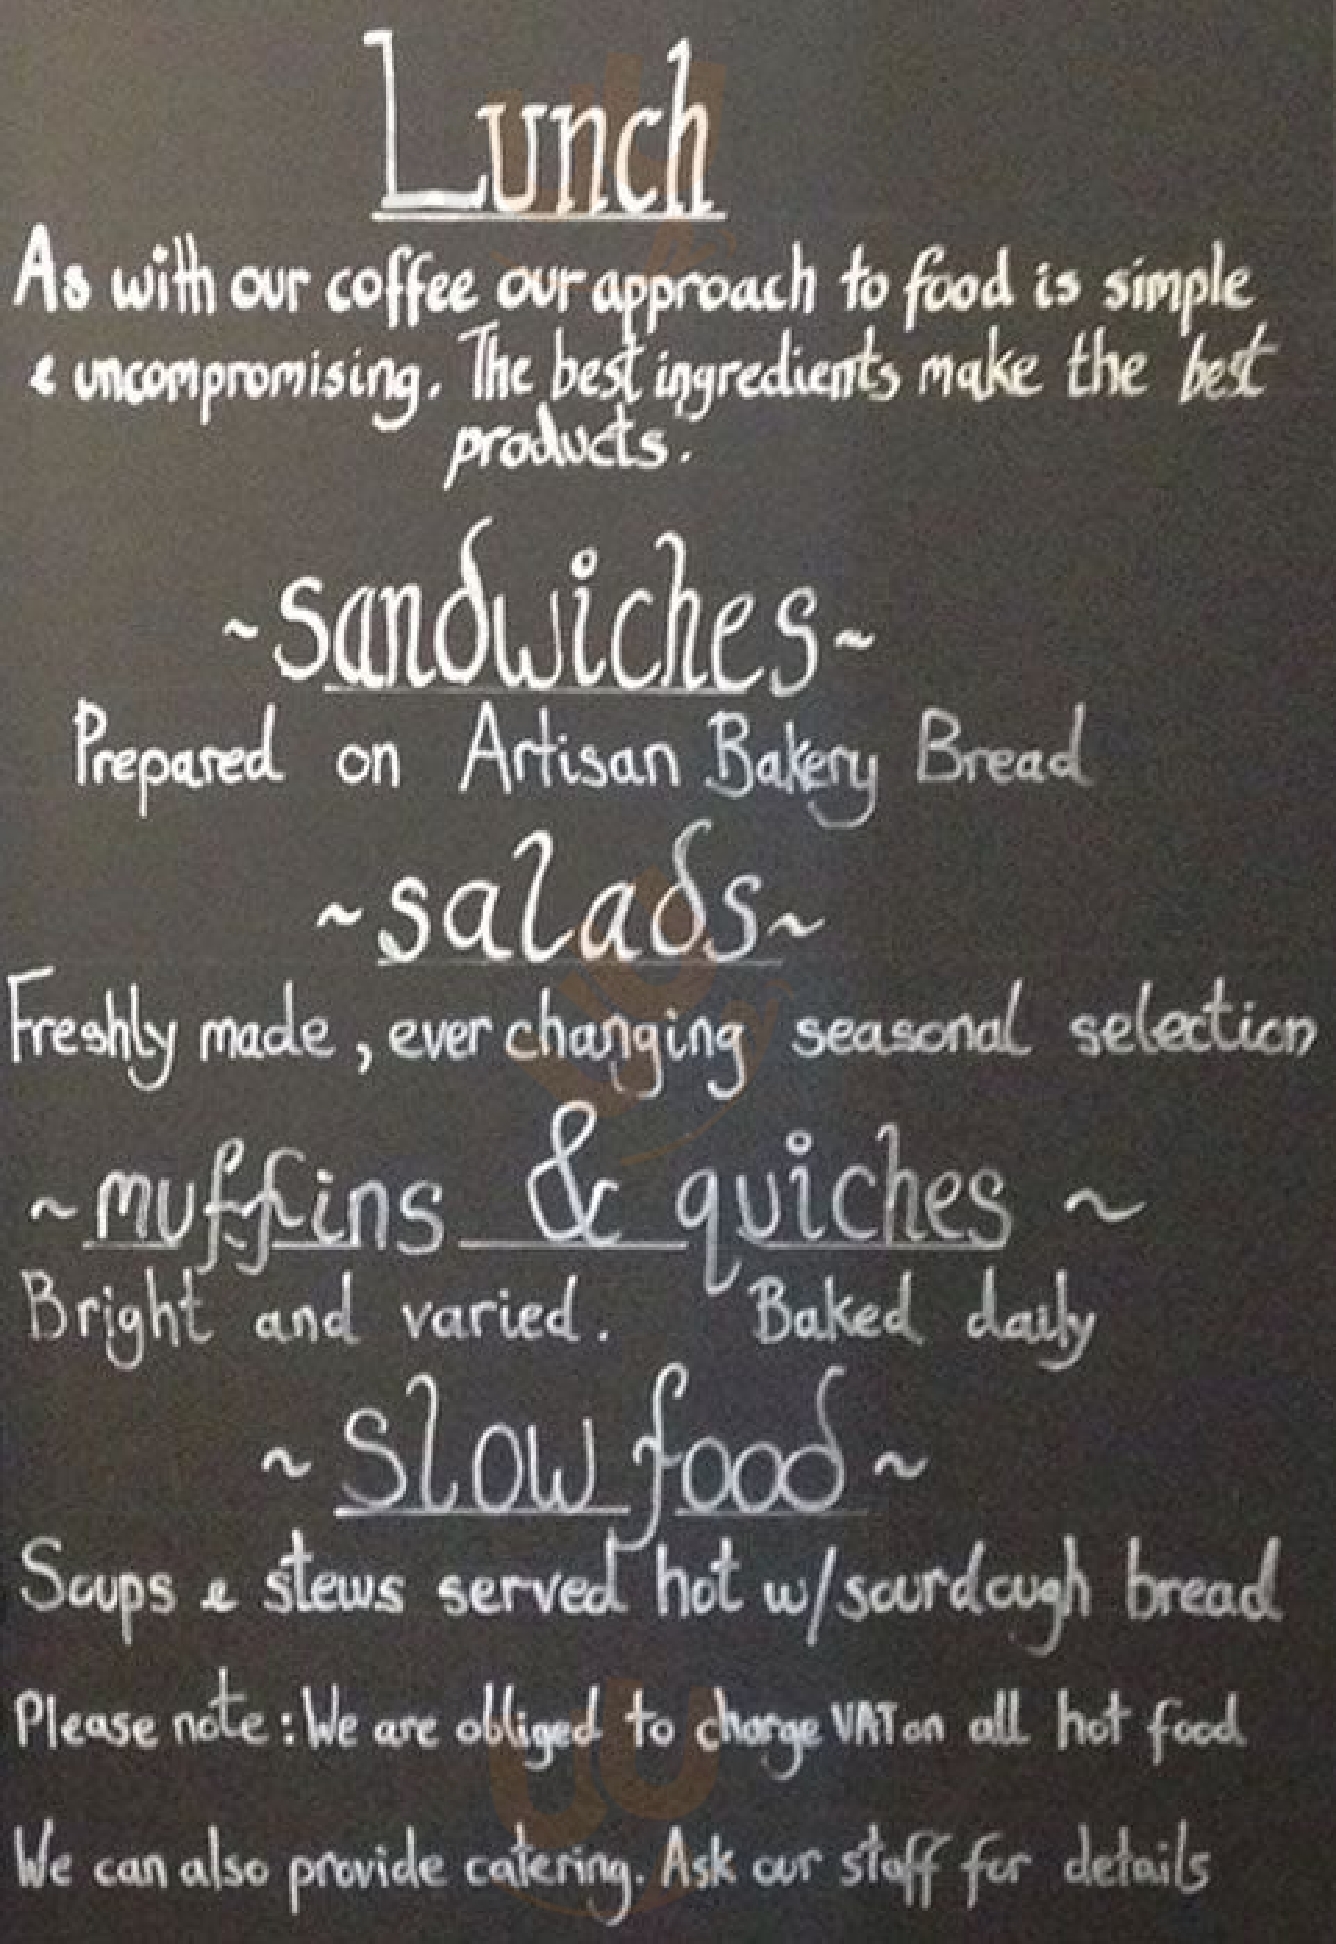 Lunch
As with our coffee our approach to food is simple
& uncompromising. The best ingredients make the best
products.
~sandwiches~
Prepared on Artisan Bakery Bread
~salads~
Freshly made, ever changing seasonal selection
~muffins & quiches~
Bright and varied. Baked daily
~Slow food~
Soups & stews served hot w/sourdough bread
Please note: We are obliged to charge VAT on all hot food
We can also provide catering. Ask our staff for details